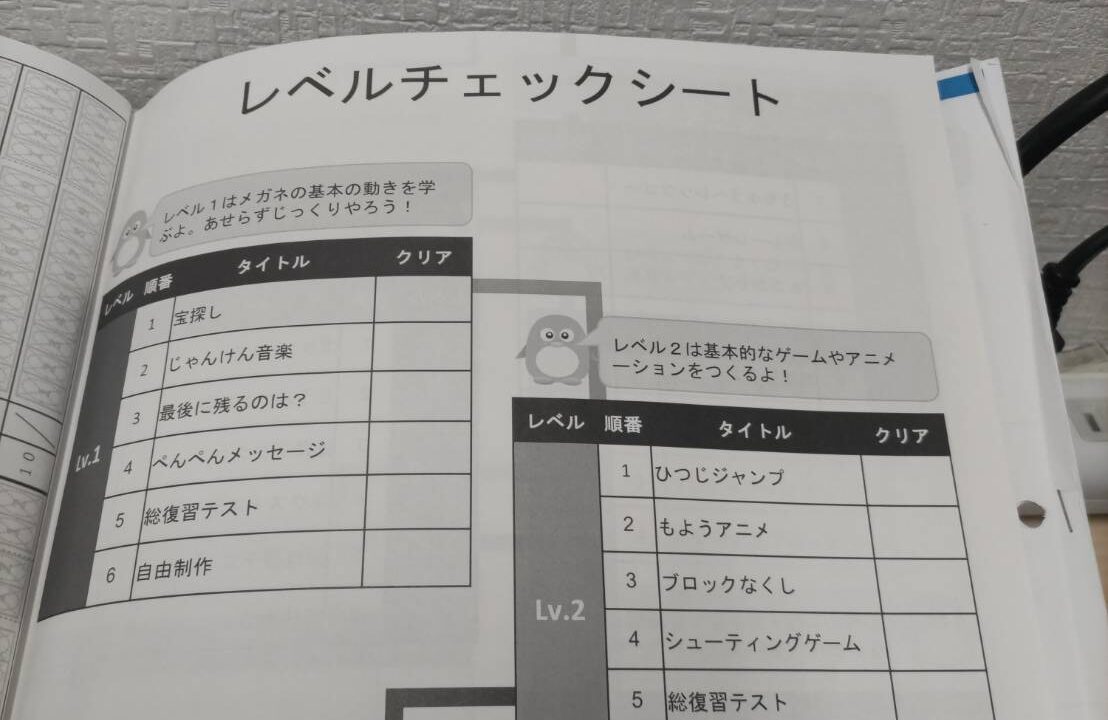 レベルチェックシート
レベル1はメガネの基本の動きを学
ぶよ。あせらずじっくりやろう！
レベル 順番 タイトル クリア
Lv.1
1 宝探し
2 じゃんけん音楽
3 最後に残るのは？
4 ぺんぺんメッセージ
5 総復習テスト
6 自由制作
レベル2は基本的なゲームやアニメ
ーションをつくるよ！
レベル 順番 タイトル クリア
Lv.2
1 ひつじジャンプ
2 もようアニメ
3 ブロックなくし
4 シューティングゲーム
5 総復習テスト
10